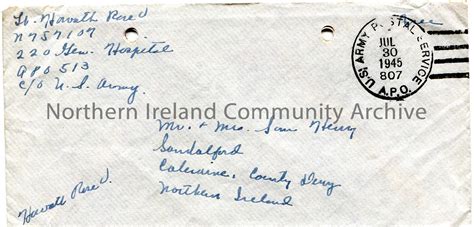 Lt. Horvath Rose D
N757107
220 Gen. Hospital
APO 513
c/o U.S. Army.
Free
U.S. ARMY POSTAL SERVICE
JUL
30
1945
807
A.P.O.
Northern Ireland Community Archive
Mr. + Mrs. Sam Henry
Sandalford
Coleraine, County Derry
Northern Ireland
Horvath Rose D.